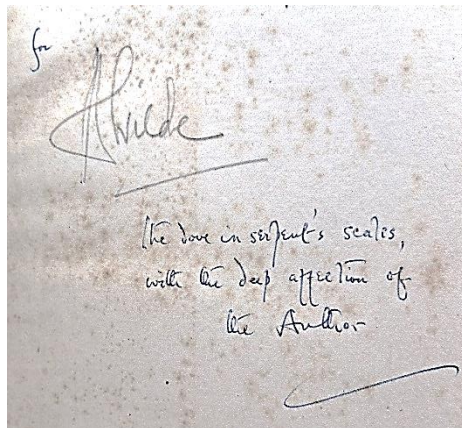 for
AWilde
the dove in serpent's scales,
with the deep affection of
the Author